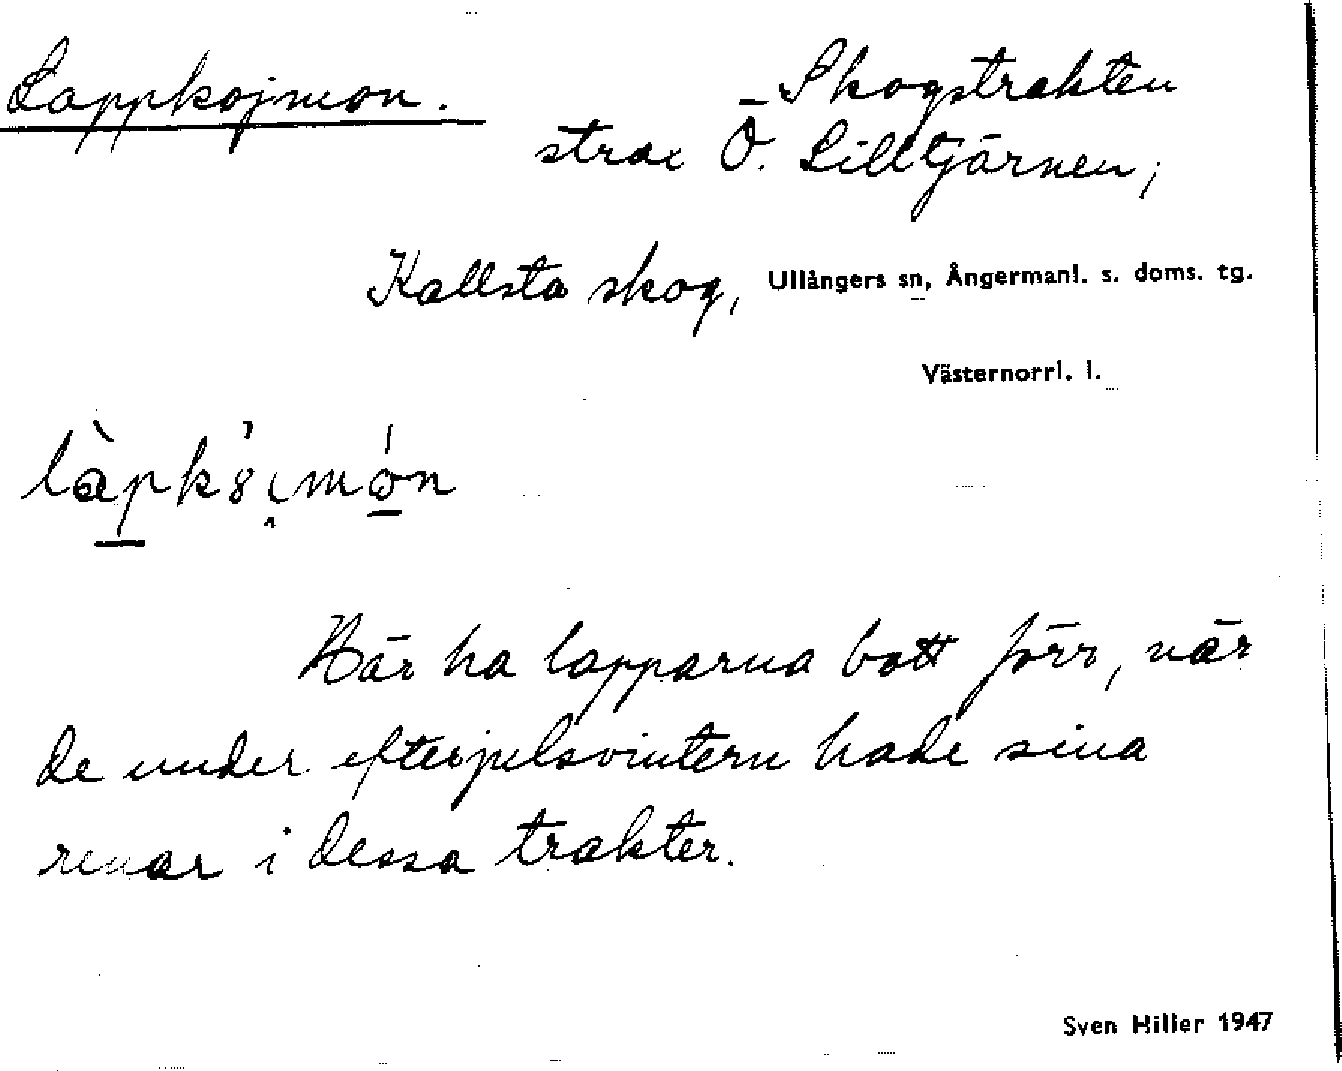 Lappkojmon.
Skogstrakten
strax Ö. Lilltjärnen;
Kallsta skog, Ullångers sn, Ångermanl. s. doms. tg.
Västernorrl. l.
Här ha lapparna bott förr, när
de under efterjulsvintern hade sina
renar i dessa trakter.
Sven Hiller 1947